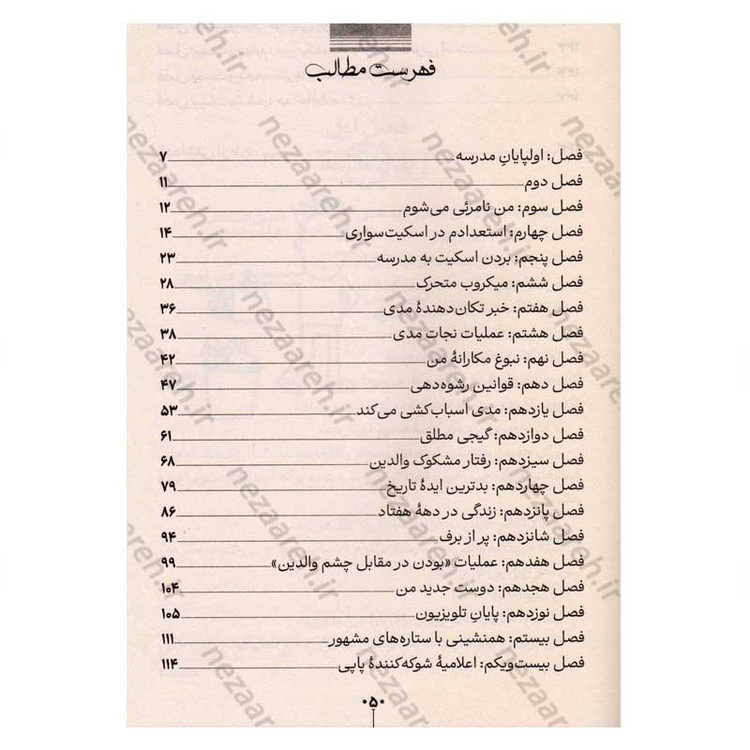 فهرست مطالب
فصل: اولپایانِ مدرسه ۷
فصل دوم ۱۱
فصل سوم: من نامرئی می‌شوم ۱۲
فصل چهارم: استعدادم در اسکیت‌سواری ۱۴
فصل پنجم: بردن اسکیت به مدرسه ۲۳
فصل ششم: میکروب متحرک ۲۸
فصل هفتم: خبر تکان‌دهندهٔ مدی ۳۶
فصل هشتم: عملیات نجات مدی ۳۸
فصل نهم: نبوغ مکارانهٔ من ۴۲
فصل دهم: قوانین رشوه‌دهی ۴۷
فصل یازدهم: مدی اسباب‌کشی می‌کند ۵۳
فصل دوازدهم: گیجی مطلق ۶۱
فصل سیزدهم: رفتار مشکوک والدین ۶۸
فصل چهاردهم: بدترین ایدهٔ تاریخ ۷۹
فصل پانزدهم: زندگی در دههٔ هفتاد ۸۶
فصل شانزدهم: پر از برف ۹۴
فصل هفدهم: عملیات «بودن در مقابل چشم والدین» ۹۹
فصل هجدهم: دوست جدید من ۱۰۴
فصل نوزدهم: پایانِ تلویزیون ۱۰۵
فصل بیستم: همنشینی با ستاره‌های مشهور ۱۱۱
فصل بیست‌ویکم: اعلامیهٔ شوکه‌کنندهٔ پاپی ۱۱۴
۰۵۰
nezaareh.ir